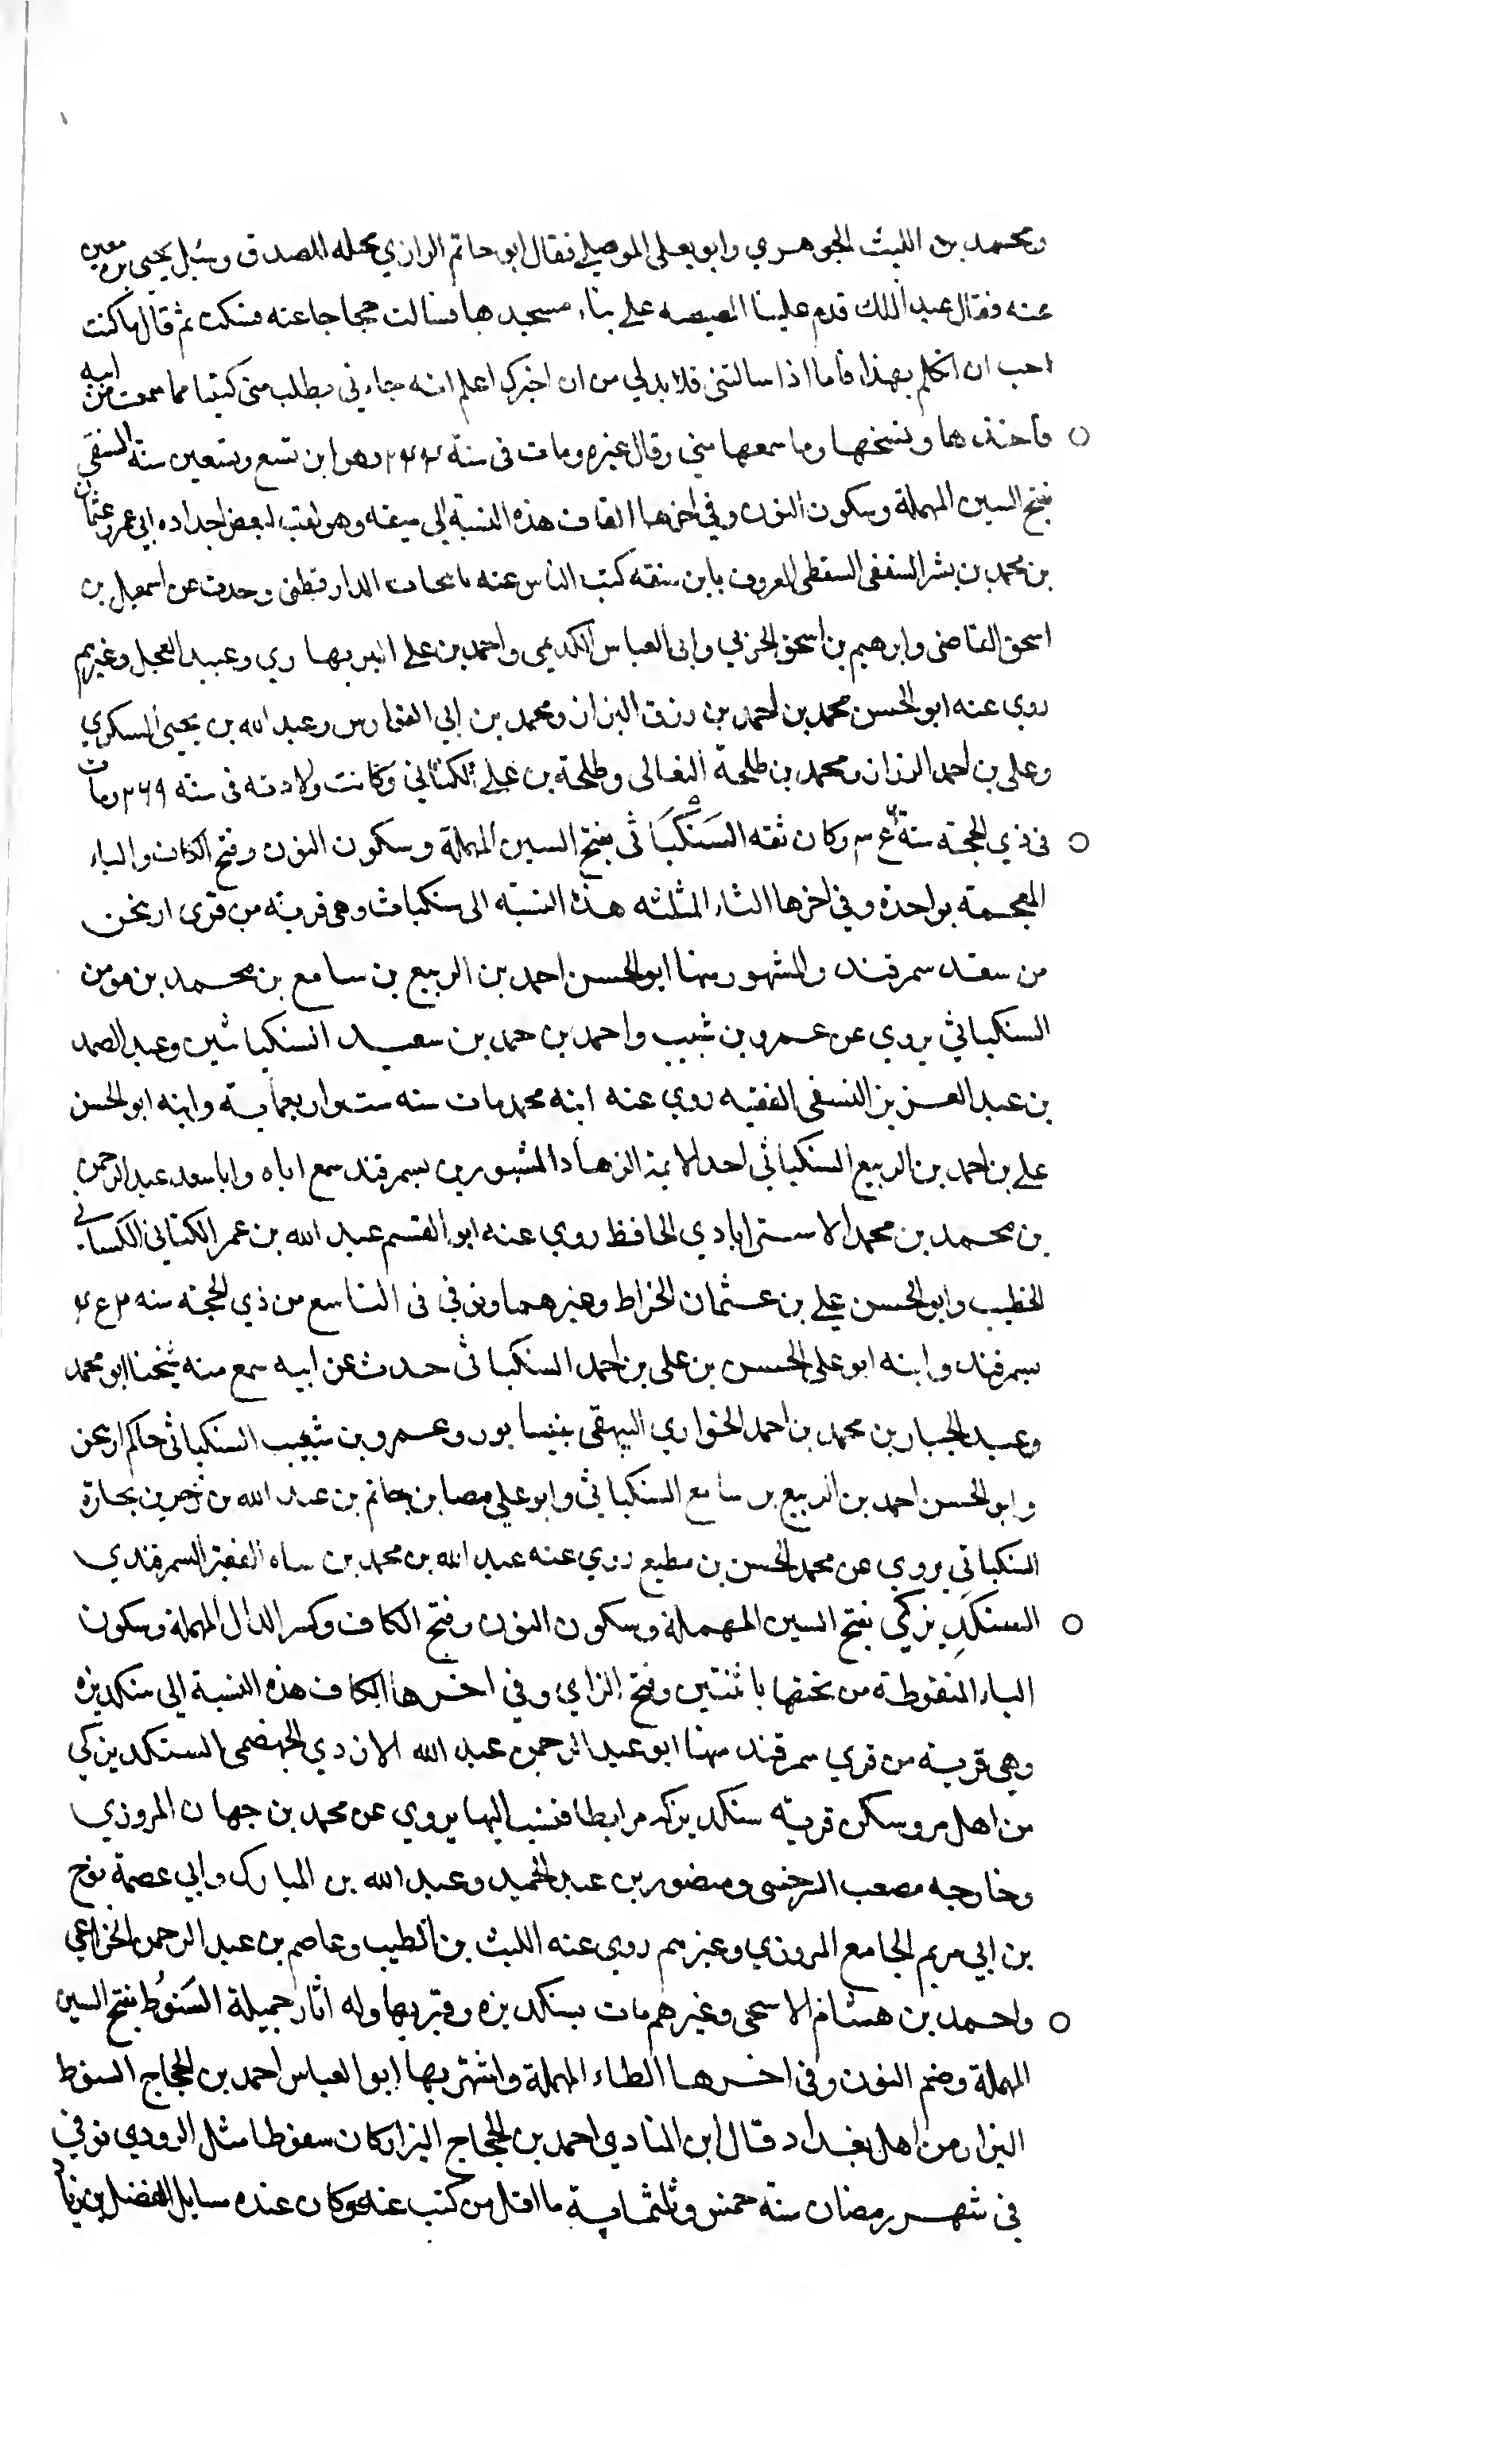 ومحمد بن الليث الجوهري وابو يعلى الموصلي فقال ابو حاتم الرازي محله الصدق وسئل يحيى بن معين
عنه فقال عبد الملك قدم علينا المصيصه على بناء مسجدها فسالت حجاجا عنه فسكت ثم قال ما كنت
احب ان اتكلم بهذا فاما اذا سالتني فلا بد لي من ان اخبرك اعلم انه جاءني يطلب مني كتبا مما سمعت من ابيه
فاخذها ونسخها وما سمعها مني وقال غيره ومات في سنة وهو ابن تسع وتسعين سنة السنقي
بفتح السين المهملة وسكون النون وفي اخرها القاف هذه النسبة الى سنقه وهو لقب لبعض اجداده ابي عمرو عثمان
بن محمد بن بشر السنقي السقطي المعروف بابن سنقه كتب الناس عنه بانتخاب الدارقطني وحدث عن اسمعيل بن
اسحق القاضي وابرهيم بن اسحق الحربي وابي العباس الكديمي واحمد بن علي البربهاري وعبيد العجل وغيرهم
روى عنه ابو الحسن محمد بن احمد بن رزق البزاز ومحمد بن ابي الفوارس وعبد الله بن يحيى السكري
وعلي بن احمد الرزاز ومحمد بن طلحة النعالي وطلحة بن علي الكتاني وكانت ولادته في سنة ٢٦٩ ومات
في ذي الحجة سنة وكان ثقه السَنْكَبَاثي بفتح السين المهملة وسكون النون وفتح الكاف والباء
المعجمة بواحدة وفي اخرها الثاء المثلثه هذه النسبة الى سنكباث وهي قرية من قرى اربنجن
من سغد سمرقند والمشهور منها ابو الحسن احمد بن الربيع بن سامع بن محمد بن مومن
السنكباثي يروي عن عمرو بن شبيب واحمد بن حمد بن سعيد السنكباثيين وعبد الصمد
بن عبد العزيز النسفي الفقيه روى عنه ابنه محمد مات سنه ست واربعماية وابنه ابو الحسن
علي بن احمد بن الربيع السنكباثي احد الايمة الزهاد المشهورين بسمرقند سمع اباه وابا سعد عبد الرحمن
بن محمد بن محمد الاستراباذي الحافظ روى عنه ابو القسم عبد الله بن عمر الكتاني الكسائي
الخطيب وابو الحسن علي بن عثمان الخراط وغيرهما وتوفي في التاسع من ذي الحجة سنه
بسمرقند وابنه ابو علي الحسن بن علي بن احمد السنكباثي حدث عن ابيه سمع منه شيخنا ابو محمد
وعبد الجبار بن محمد بن احمد الخواري البيهقي بنيسابور وعمرو بن شعيب السنكباثي حاكم اربنجن
وابو الحسن احمد بن الربيع بن سامع السنكباثي وابو علي بن حاتم بن عبد الله بن
السنكباثي يروي عن محمد الحسن بن مطيع روى عنه عبد الله بن محمد بن ساه الفقيه السمرقندي
السنكَدِيزكي بفتح السين المهملة وسكون النون وفتح الكاف وكسر الدال المهملة وسكون
الياء المنقوطة من تحتها باثنتين وفتح الزاي وفي اخرها الكاف هذه النسبة الى سنكديزه
وهي قرية من قرى سمرقند منها ابو عبد الرحمن عبد الله الازدي الجهضمي السنكديزكي
من اهل مرو سكن قرية سنكديزكه مرابطا فنسب اليها يروي عن محمد بن جهان المروزي
وخارجه مصعب السرخسي ومنصور بن عبد الحميد وعبد الله بن المبارك وابي عصمة نوح
بن ابي مريم الجامع المروزي وغيرهم روى عنه الليث بن الطيب وعاصم بن عبد الرحمن الخزاعي
واحمد بن هشام الاسحى وغيرهم مات بسنكديزه وقبر بها وله اثار جميلة السَنوُط بفتح السين
المهملة وضم النون وفي اخرها الطاء المهملة واشتهر بها ابو العباس احمد بن الحجاج السنوط
البزاز من اهل بغداد قال ابن المنادي احمد بن الحجاج البزاز كان سنوطا مثل الرودي توفي
في شهر رمضان سنة خمس وثلثماية ما اقل من كتب عنه وكان عنده مسايل الفضل بن زياد